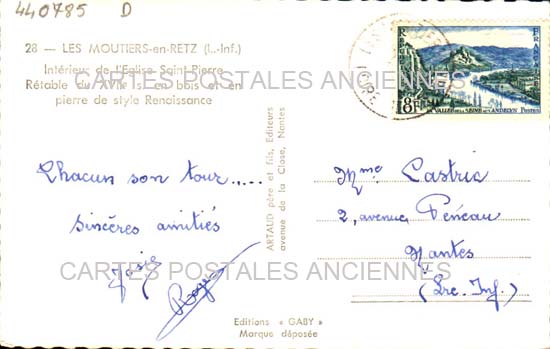 440785 D
28 — LES MOUTIERS-en-RETZ (L.-Inf.)
Intérieur de l'Eglise Saint-Pierre
Rétable du XVIIe s. en bois et en
pierre de style Renaissance
CARTES POSTALES ANCIENNES
Chacun son tour.....
Sincères amitiés
Josie
Roger
ARTAUD père et fils, Editeurs
avenue de la Close, Nantes
REPUBLIQUE FRANÇAISE
8F
VALLEE DE LA SEINE AUX ANDELYS POSTES
Mme Castric
2, avenue Péneau
Nantes
(Lre. Inf.)
CARTES POSTALES ANCIENNES
Editions « GABY »
Marque déposée